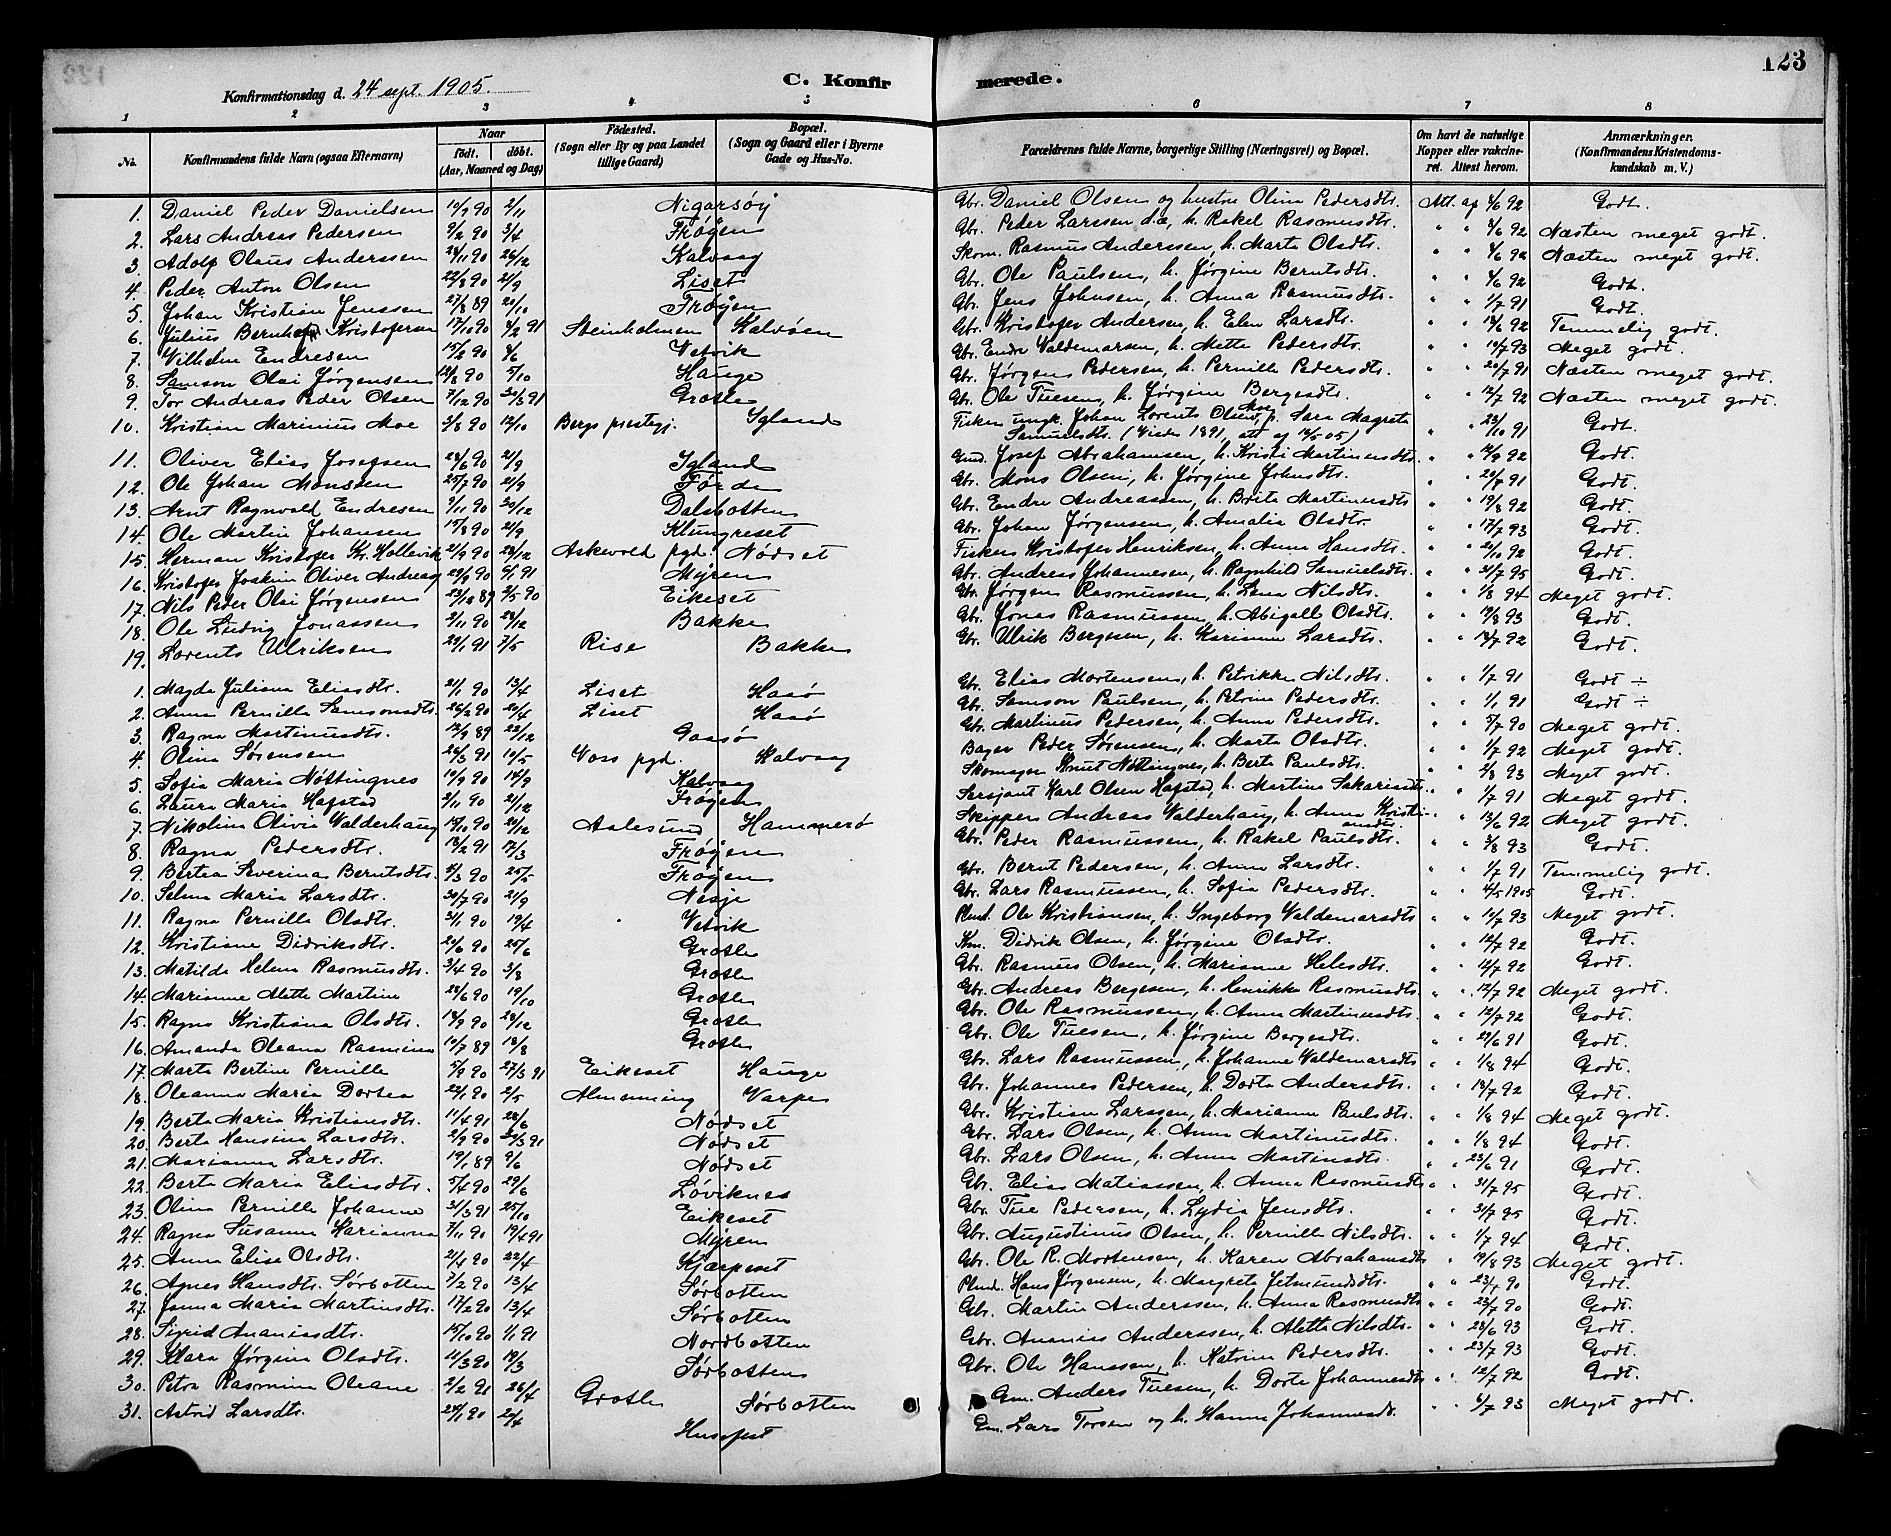 123
C. Konfirmerede.
Konfirmationsdag d. 24 sept. 1905.
1 2 3 4 5 6 7 8
No.
Konfirmandens fulde Navn (ogsaa Efternavn)
Naar
født. døbt.
(Aar, Maaned og Dag)
Fødested.
(Sogn eller By og paa Landet tillige Gaard)
Bopæl.
(Sogn og Gaard eller i Byerne Gade og Hus-No.
Forældrenes fulde Navne, borgerlige Stilling (Næringsvei) og Bopæl.
Om havt de naturlige Kopper eller vakcineret. Attest herom.
Anmærkninger.
(Konfirmandens Kristendomskundskab m. V.)
1. Daniel Peder Danielsen 10/9 90 2/11 Nigarsöy Gbr. Daniel Olsen og hustru Olina Pedersdtr. Att. af 4/6 92 Godt.
2. Lars Andreas Pedersen 9/2 90 3/4 Frøyen Gbr. Peder Larssen d.æ, h. Rakel Rasmusdtr. " " 4/6 92 Næsten meget godt.
3. Adolf Olaus Anderssen 24/11 90 26/12 Kalvaag Skom. Rasmus Anderssen, h. Marta Olsdtr. " " 4/6 92 Næsten meget godt.
4. Peder Anton Olsen 22/8 90 21/9 Liset Gbr. Ole Paulsen, h. Jørgine Berntsdtr. " " 4/6 92 Godt.
5. Johan Kristian Jenssen 27/8 89 20/10 Frøyen Gbr. Jens Johnsen, h. Anna Rasmusdtr. " " 1/7 91 Godt.
6. Julius Bernhard Kristofersen 17/10 90 4/2 91 Steinholmen Kalvøen Gbr. Kristofer Andersen, h. Elen Larsdtr. " " 14/6 92 Temmelig godt.
7. Vilhelm Endresen 15/2 90 4/6 Vetvik Gbr. Endre Valdemarsen, h. Mette Pedersdtr. " " 10/7 93 Meget godt.
8. Samson Olai Jørgensen 12/8 90 5/10 Hauge Gbr. Jørgen Pedersen, h. Pernille Pedersdtr. " " 20/7 91 Næsten meget godt.
9. Tor Andreas Peder Olsen 7/12 90 30/3 91 Grotle Gbr. Ole Tuesen, h. Jørgine Bergesdtr. " " 12/7 92 Næsten meget godt.
10. Kristian Marinius Moe 3/8 90 12/10 Bergs prestegj. Igland Fisker ungk. Johan Lorents Olsen Moe, p. Sara Magreta Samuelsdtr. (Viede 1891, att. af 14/5 05) " 23/10 91 Godt.
11. Oliver Elias Josefsen 28/6 90 21/9 Igland Gmd. Josef Abrahamsen, h. Kristi Martinusdtr. " " 12/9 92 Godt.
12. Ole Johan Monssen 25/7 90 21/9 Førde Gbr. Mons Olsen, h. Jørgine Johnsdtr. " " 20/7 91 Godt.
13. Arnt Ragnvald Endresen 9/11 90 20/12 Dalsbotten Gbr. Endre Andreassen, h. Brita Martinusdtr " " 19/8 92 Godt.
14. Ole Martin Johansen 15/8 90 21/9 Klungreset Gbr. Johan Jørgensen, h. Amalia Olsdtr. " " 17/7 93 Godt.
15. Herman Kristofer Kr. Hollevik 21/9 90 28/12 Askevold pgd. Nødset Fisker Kristofer Henriksen, h. Anna Hansdtr. " " 20/10 92 Godt.
16. Kristofer Joakim Oliver Andreas 29/9 90 6/1 91 Myren Gbr. Andreas Johannesen, h. Ragnhild Samuelsdtr. " " 31/7 95 Godt.
17. Nils Peder Olai Jørgensen 23/12 89 9/5 90 Eikeset Gbr. Jørgen Rasmussen, h. Lena Nilsdtr. " " 1/8 94 Meget godt.
18. Ole Ludvig Jonassen 3/11 90 28/12 Bakke Gbr. Jonas Rasmussen, h. Abigall Olsdtr. " " 19/8 93 Godt.
19. Lorents Ulriksen 29/1 91 7/5 Rise Bakke Gbr. Ulrik Bergesen, h. Karianna Larsdtr. " " 18/7 92 Godt.
1. Magda Juliana Eliasdtr. 21/1 90 13/4 Liset Hasø Gbr. Elias Mortensen, h. Petrikke Nilsdtr. " " 1/7 91 Godt ÷
2. Anna Pernille Samsonsdtr. 26/2 90 20/4 Liset Hasø Gbr. Samson Paulsen, h. Petrine Pedersdtr. " " 1/1 91 Godt ÷
3. Ragna Martinusdtr. 12/9 89 22/12 Gaasø Gbr. Martinus Pedersen, h. Anna Pedersdtr. " " 5/7 90 Meget godt.
4. Olina Sørensen 26/3 91 10/5 Voss pgd. Kalvaag Bager Peder Sørensen, h. Marta Olsdtr. " " 1/7 92 Meget godt.
5. Sofia Maria Nøttingnes 19/9 90 14/9 Kalvaag Skomager Knut Nøttingnes, h. Berta Paulsdtr. " " 2/8 93 Meget godt.
6. Laura Maria Hafstad 2/11 90 21/12 Frøyen Sersjant Karl Olsen Hafstad, h. Martina Sakariasdtr. " " 1/7 91 Meget godt.
7. Nikolina Olivia Valderhaug 15/10 90 20/12 Aalesund Hammerø Skipper Andreas Valderhaug, h. Anna Kristiansdtr. " " 13/6 92 Meget godt.
8. Ragna Pedersdtr. 13/2 91 17/3 Frøyen Gbr. Peder Rasmussen, h. Rakel Paulsdtr. " " 3/8 93 Godt.
9. Bertea Severina Berntsdtr. 3/3 90 25/5 Frøyen Gbr. Bernt Pedersen, h. Anna Larsdtr. " " 1/7 91 Temmelig godt.
10. Selma Maria Larsdtr. 30/7 90 21/9 Nesje Gbr. Lars Rasmussen, h. Sofia Pedersdtr. " " 4/5 1905 Godt.
11. Ragna Pernille Olsdtr. 3/1 90 19/4 Vetvik Plmd. Ole Kristiansen, h. Ingeborg Valdemarsdtr " " 10/7 93 Meget godt.
12. Kristiane Didriksdtr. 21/6 90 25/6 Grotle Km. Didrik Olsen, h. Jørgine Olsdtr. " " 12/7 92 Godt.
13. Matilde Helena Rasmusdtr. 3/4 90 3/8 Grotle Gbr. Rasmus Olsen, h. Marianne Helesdtr. " " 12/7 92 Godt.
14. Marianne Alette Martine 28/6 90 19/10 Grotle Gbr. Andreas Bergesen, h. Henrikke Rasmusdtr. " " 12/7 92 Meget godt.
15. Ragna Kristiana Olsdtr. 14/9 90 28/12 Grotle Gbr. Ole Rasmussen, h. Anna Martinusdtr. " " 12/7 92 Godt.
16. Amanda Oleana Rasmine 10/7 89 18/8 Grotle Gbr. Ole Tuesen, h. Jørgine Bergesdtr. " " 21/6 91 Godt.
17. Marta Bertine Pernille 5/9 90 27/3 91 Eikeset Hauge Gbr. Lars Rasmussen, h. Johanne Valdemarsdtr " " 1/8 94 Godt.
18. Oleanna Maria Dortea 22/1 90 2/5 Almenning Varpe Gbr. Johannes Pedersen, h. Dorta Andersdtr. " " 18/7 92 Godt.
19. Berta Maria Kristiansdtr. 11/4 91 28/6 Nødset Gbr. Kristian Larssen, h. Marianne Paulsdtr. " " 1/8 94 Meget godt.
20. Berta Hansina Larsdtr. 2/9 90 30/3 91 Nødset Gbr. Lars Olsen, h. Anna Martinusdtr. " " 1/8 94 Godt.
21. Marianna Larsdtr. 19/1 89 9/6 Nødset Gbr. Lars Olsen, h. Anna Martinsdtr. " " 23/6 91 Godt.
22. Berta Maria Eliasdtr. 5/4 90 29/6 Løviknes Gbr. Elias Matiassen, h. Anna Rasmusdtr " " 31/7 95 Godt.
23. Olina Pernille Johanne 31/3 91 25/10 Eikeset Gbr. Tue Pedersen, h. Lydia Jensdtr. " " 31/7 95 Godt.
24. Ragna Susanna Karianna 7/11 90 19/4 91 Myren Gbr. Augustinus Olsen, h. Pernille Nilsdtr. " " 1/7 94 Godt.
25. Anna Elise Olsdtr. 21/4 90 22/4 Kjærpeset Gbr. Ole R. Mortensen, h. Karen Abrahamsdtr " " 19/8 93 Meget godt.
26. Agnes Hansdtr. Sørbotten 7/2 90 13/4 Sørbotten Plmd. Hans Jørgensen, h. Margreta Jetmundsdtr. " " 23/7 90 Godt.
27. Janna Maria Martinsdtr. 17/2 90 13/4 Sørbotten Gbr. Martin Anderssen, h. Anna Rasmusdtr " " 23/7 90 Godt.
28. Sigrid Ananiasdtr. 15/10 90 1/1 91 Nordbotten Gbr. Ananias Anderssen, h. Alette Nilsdtr. " " 28/6 93 Godt.
29. Klara Jørgina Olsdtr. 11/3 90 19/3 Sørbotten Gbr. Ole Hanssen, h. Katrine Pedersdtr. " " 23/7 93 Godt.
30. Petra Rasmina Oleane 2/2 91 26/4 Grotle Sørbotten Gm. Anders Tuesen, h. Dorte Johannesdtr " " 12/7 92 Godt.
31. Astrid Larsdtr. 24/1 90 20/4 Husefest Gm. Lars Torsen og h. Hanna Johannesdt. " " 6/7 93 Meget godt.